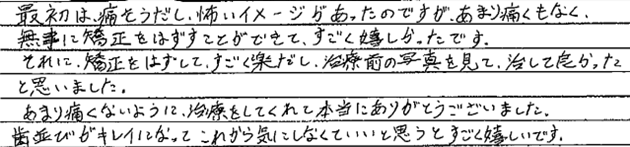 最初は、痛そうだし、怖いイメージがあったのですが、あまり痛くもなく、
無事に矯正をはずすことができて、すごく嬉しかったです。
それに、矯正をはずして、すごく楽だし、治療前の写真を見て、治して良かった
と思いました。
あまり痛くないように、治療をしてくれて本当にありがとうございました。
歯並びがキレイになって これから気にしなくていいと思うとすごく嬉しいです。